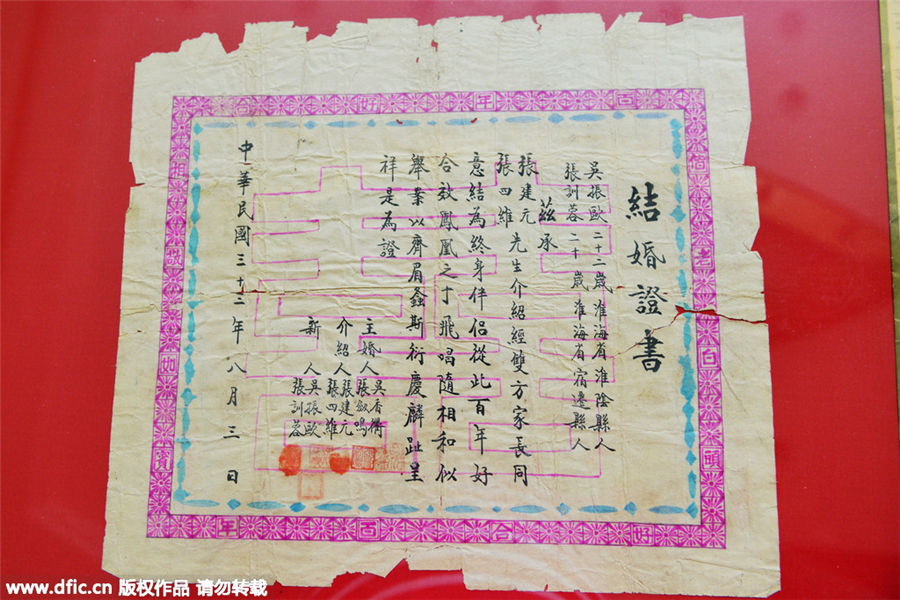 結婚證書
吳振歐 二十二歲 淮海省淮陰縣人
張訓蓉 二十歲 淮海省宿遷縣人
茲承
張建元
張四維
先生介紹經雙方家長同
意結為終身伴侶從此百年好
合效鳳凰之于飛唱隨相和似
舉案以齊眉螽斯衍慶麟趾呈
祥是為證
主婚人
吳香
張
鳴
介紹人
張建元
張四維
新人
吳振歐
張訓蓉
中華民國三十二年八月三日
百年好合
偕老
白頭
百年
好合
相敬如賓
www.dfic.cn 版权作品 请勿转载